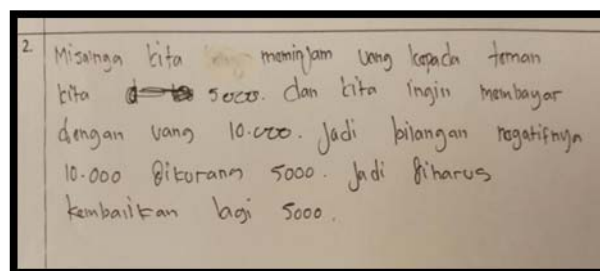 2 Misalnya kita meminjam uang kepada teman
kita 5000. dan kita ingin membayar
dengan uang 10.000. Jadi bilangan negatifnya
10.000 dikurang 5000. Jadi diharus
kembalikan lagi 5000.